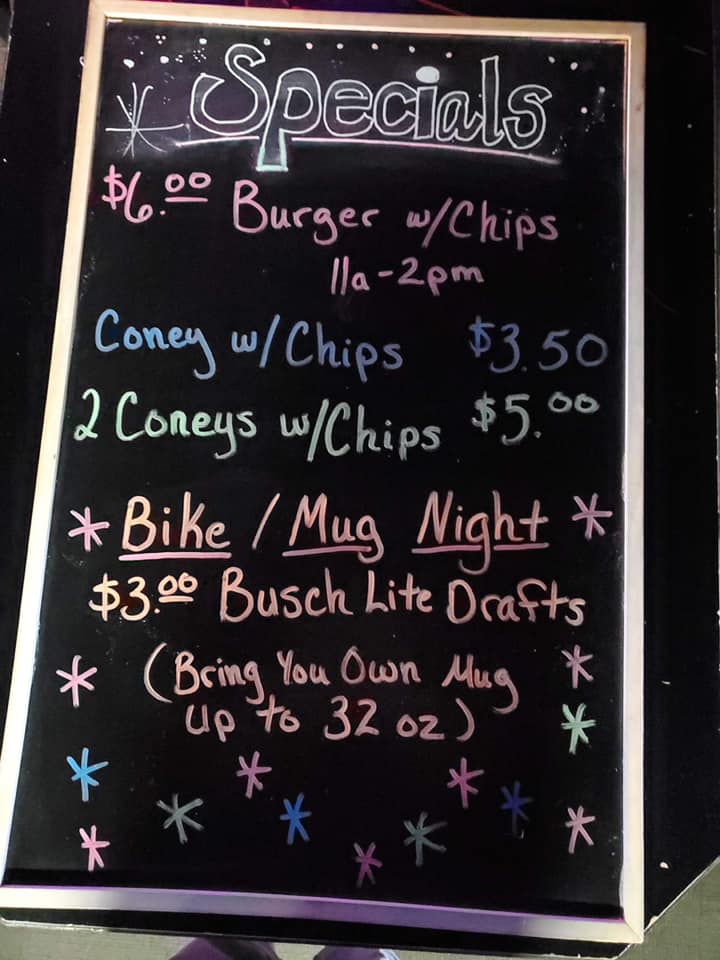 Specials
$6.00 Burger w/Chips
11a-2pm
Coney w/Chips $3.50
2 Coneys w/Chips $5.00
* Bike / Mug Night *
$3.00 Busch Lite Drafts
(Bring You Own Mug
Up to 32 oz)